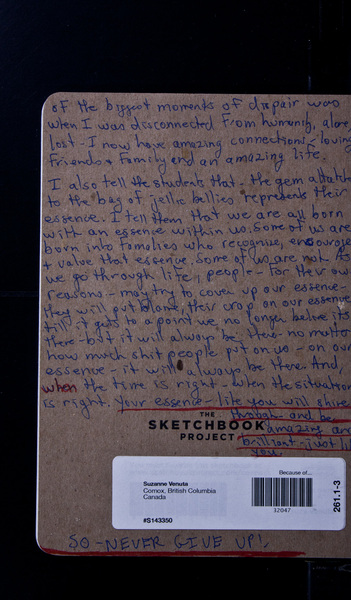 of the biggest moments of dispair was
when I was disconnected from humanity, alone,
lost - I now have amazing connections - loving
friends & family and an amazing life.
I also tell the students that - the gem attached
to the bag of jellie bellies represents their
essence. I tell them that we are all born
with an essence within us. Some of us are
born into families who recognise, encourage
+ value that essence. Some of us are not. As
we go through life, people - for their own
reasons - may try to cover up our essence -
they will put blame, their crap on our essence
till it gets to a point we no longer believe its
there - but it will always be there - no matter
how much shit people put on us - on our
essence - it will always be there. And,
when the time is right - when the situation
is right. Your essence - like you will shine
through - and be
THE
SKETCHBOOK
amazing and
PROJECT
brilliant - just like
you.
Because of...
Suzanne Venuta
Comox, British Columbia
Canada
32047
#S143350
261.1-3
SO - NEVER GIVE UP!